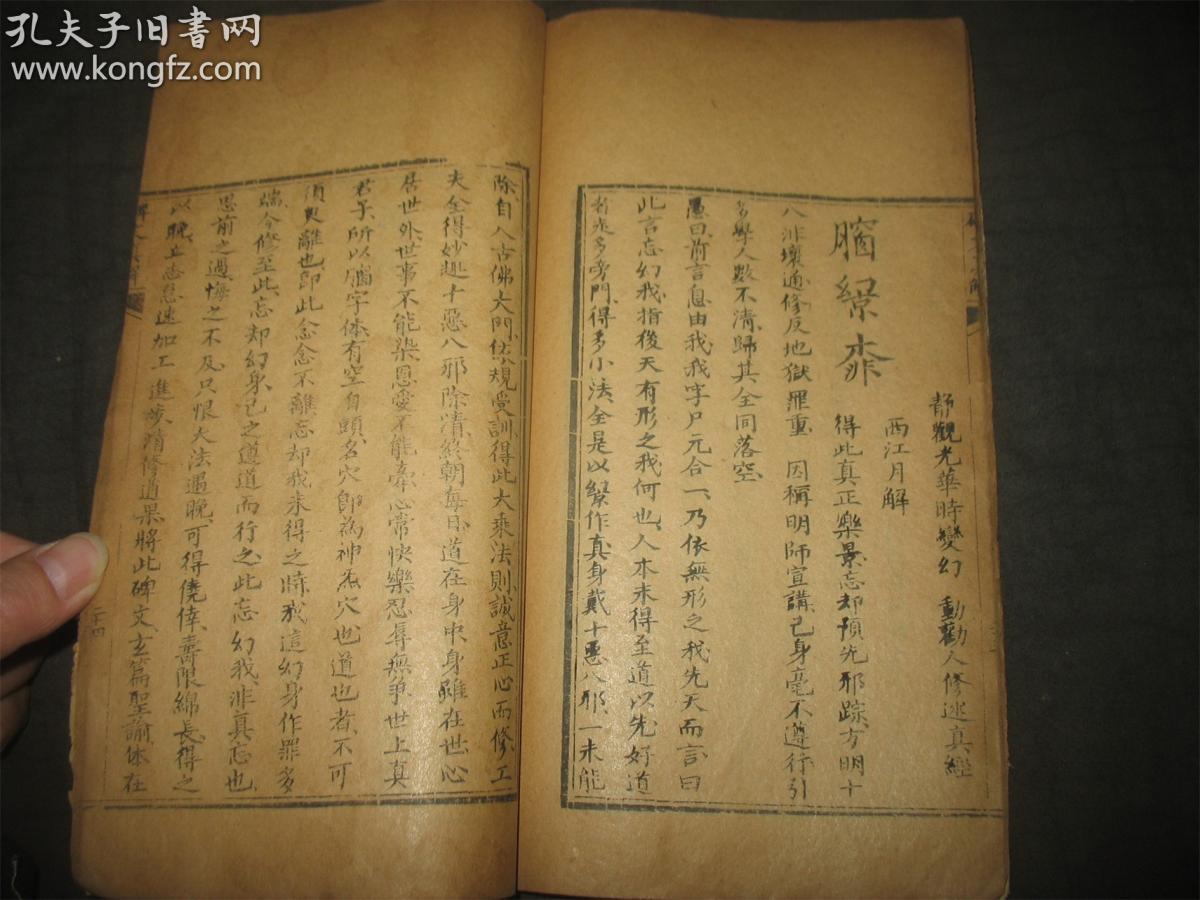 孔夫子旧书网
www.kongfz.com
静觀光華時變幻 動勸人修述真經
西江月解
得此真正樂景忘却預先邪踪方明十
八非壞通修反地獄罪重 因稱明師宣講己身毫不遵行引
多學人數不清歸其全同落空
愚曰前言息由我我字尸元合一乃依無形之我先天而言曰
此言忘幻我指後天有形之我何也人本未得至道以先好道
者先多旁門得多小法全是以幻作真身戴十惡八邪一未能
除自入古佛大門依規受訓得此大乘法則誠意正心而修工
夫全得妙趣十惡八邪除清終朝每日道在身中身雖在世心
居世外世事不能染恩愛不能牽心常快樂忍辱無爭世上真
君子所以腦字体有空自頭名穴即為神炁穴也道也者不可
須臾離也即此念念不離忘却我未得之時我這幻身作罪多
端今修至此忘却幻身已之遵道而行之此忘幻我非真忘也
思前之過悔之不及只恨大法遇晚可得僥倖壽限綿長得之
以晚立志急速加工進步清修道果將此碑文玄篇聖諭休在
二十四